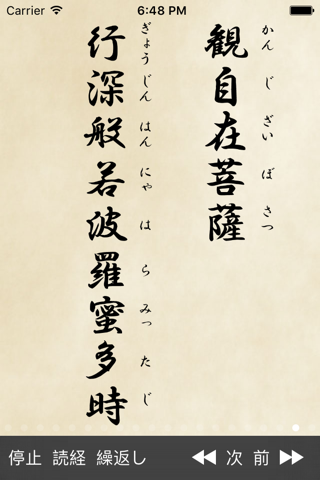 Carrier 6:48 PM
観自在菩薩
かん じ ざい ぼ さつ
行深般若波羅蜜多時
ぎょう じん はん にゃ は ら みっ た じ
停止 読経 繰返し 次 前